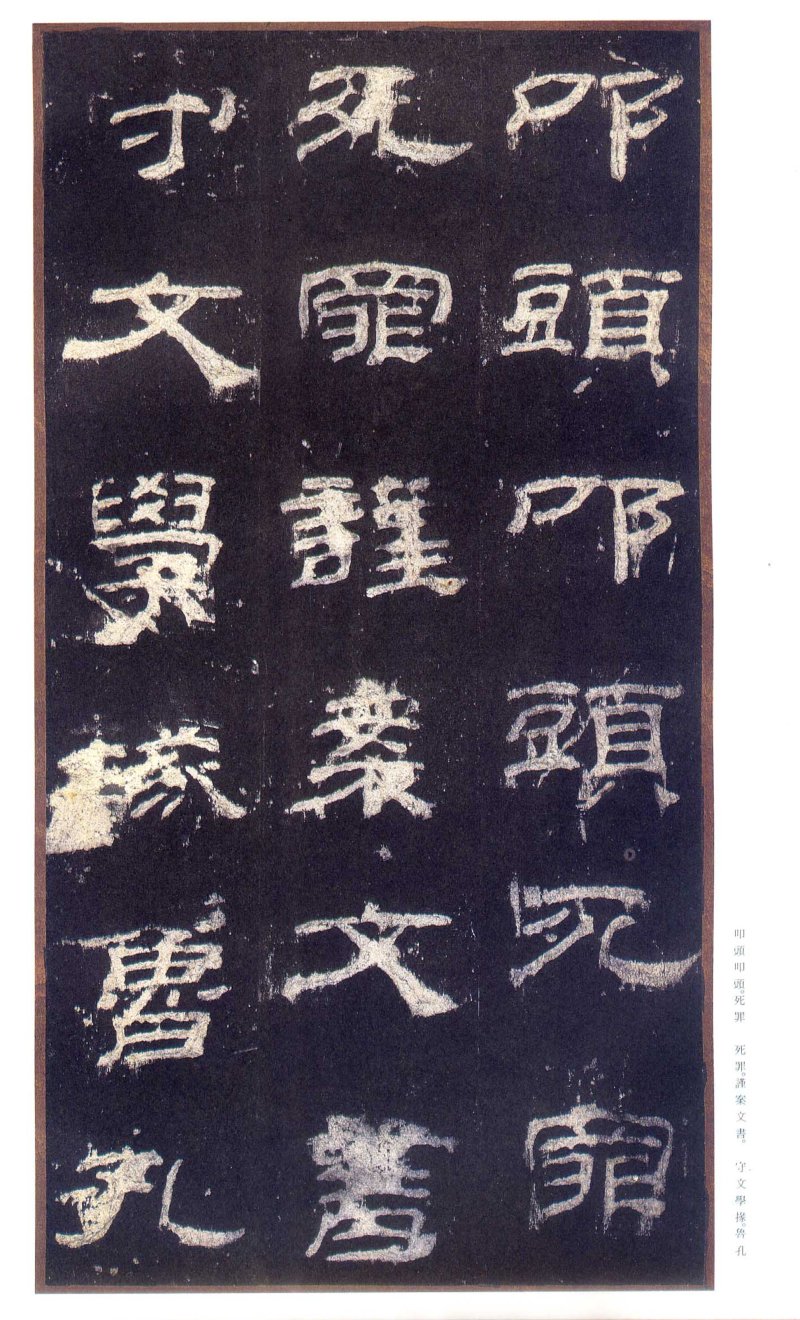 叩頭叩頭死罪
死罪謹案文書
守文學掾魯孔
叩頭叩頭。死罪　死罪。謹案文書。　守文學掾。魯孔